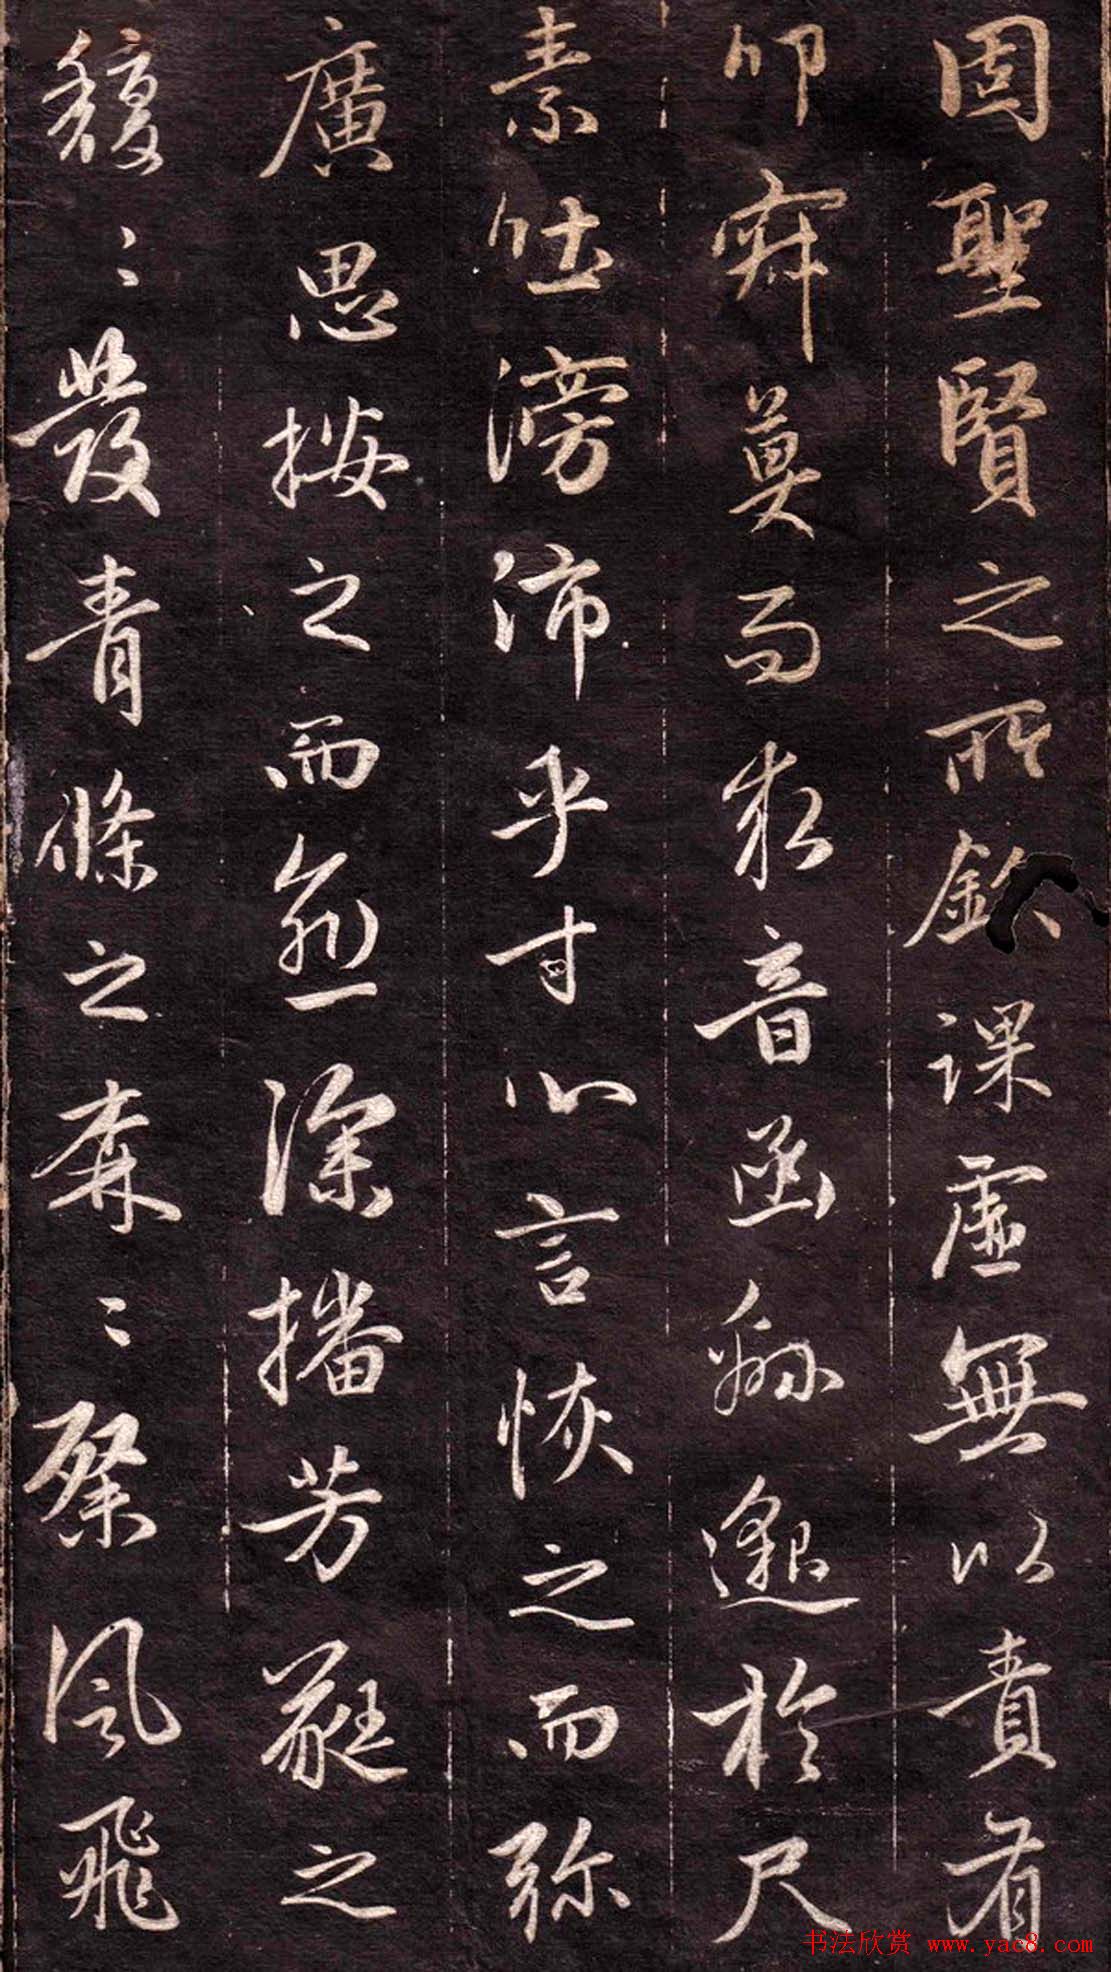 固聖賢之所欽課虛無以責有
叩寂寞而求音函緜邈於尺
素吐滂沛乎寸心言恢之而弥
廣思按之而愈深播芳蕤之
馥〻發青條之森〻粲風飛
书法欣赏 www.yac8.com